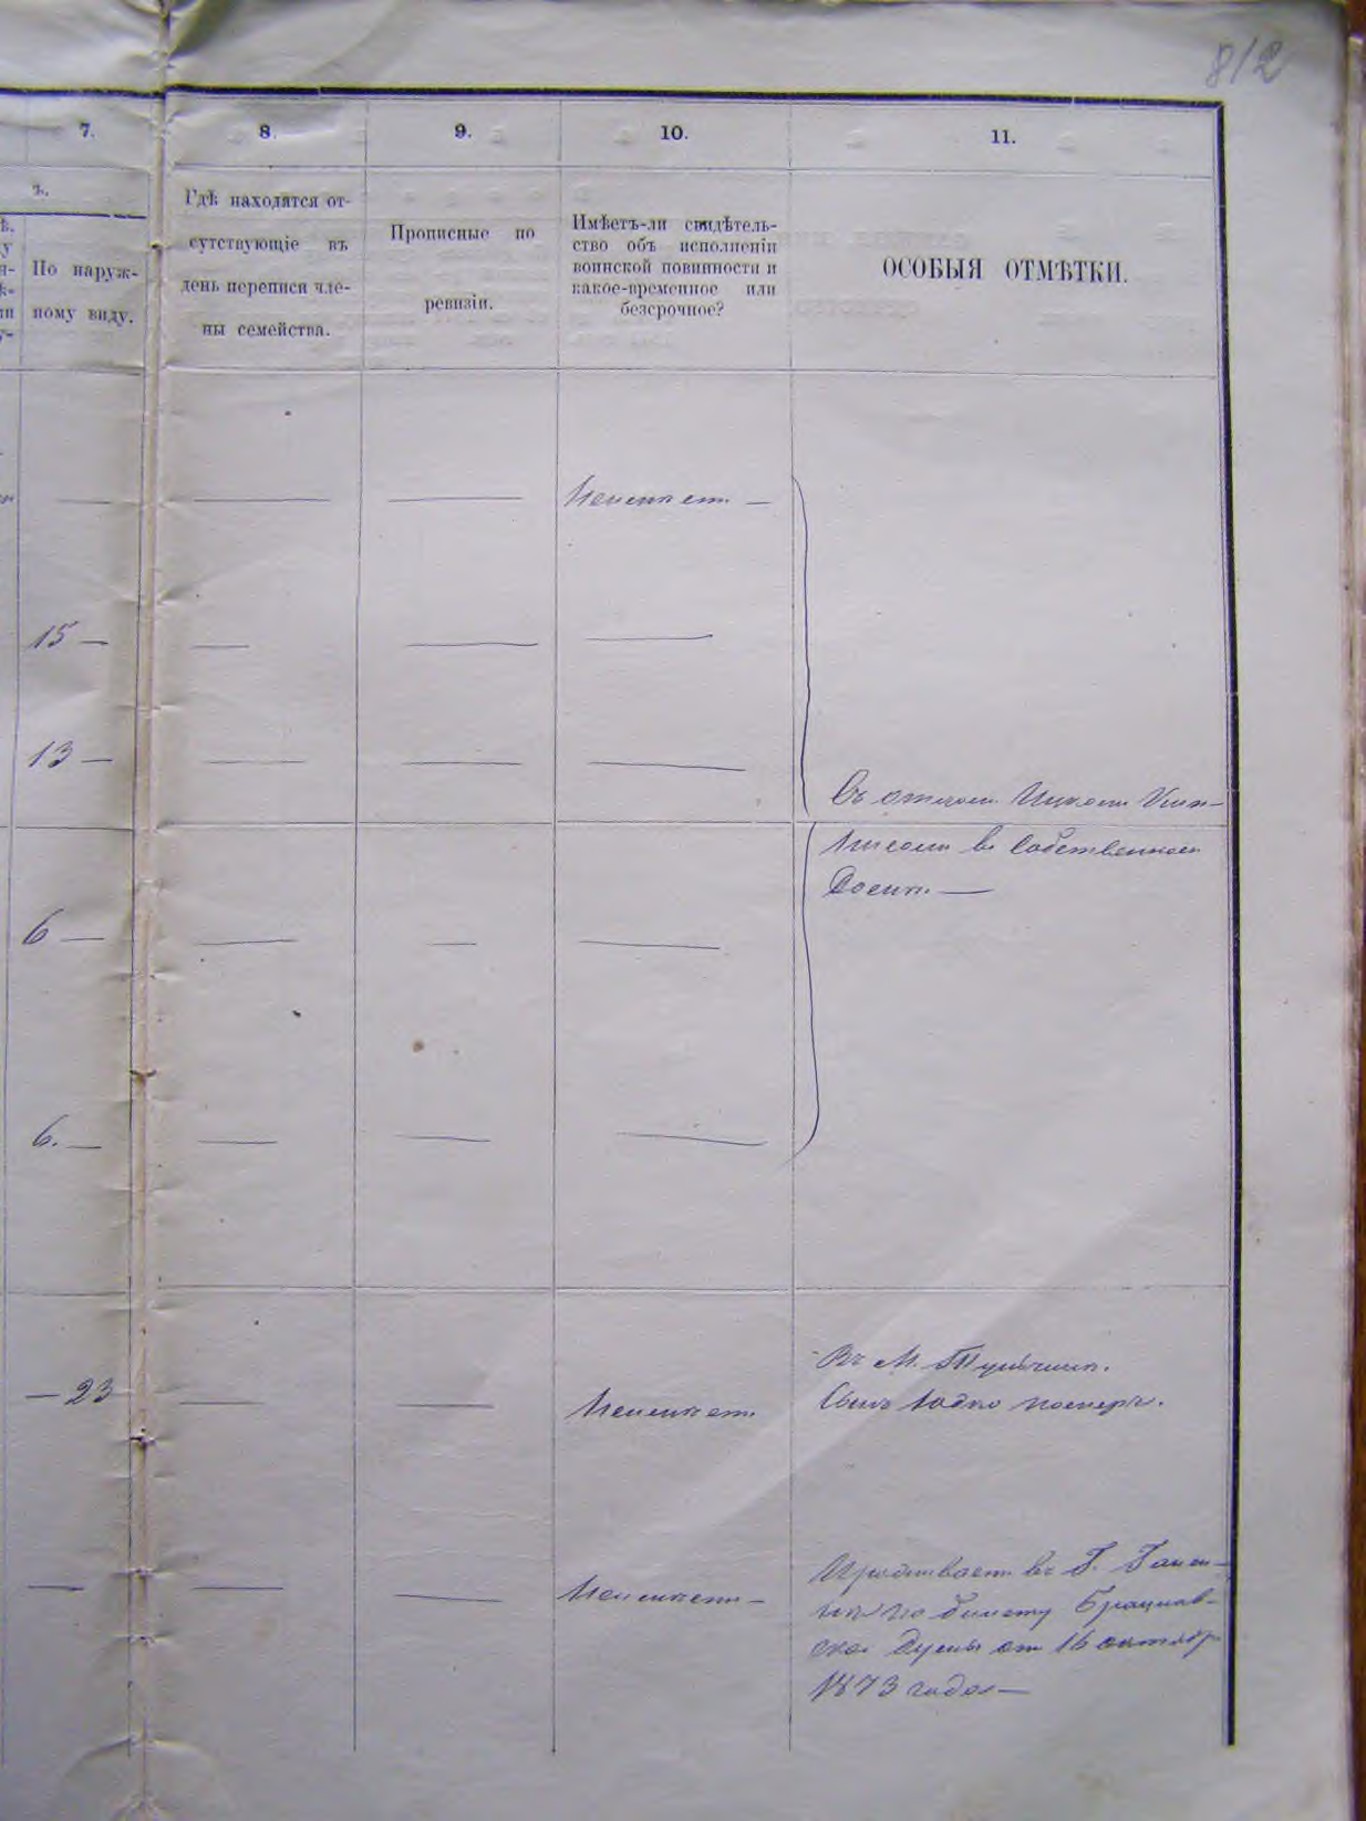 812
7.
8.
9.
10.
11.
ъ.
По наруж-
ному виду.
Гдѣ находятся от-
сутствующіе въ
день переписи чле-
ны семейства.
Прописные по
ревизіи.
Имѣетъ-ли свидѣтель-
ство объ исполненіи
воинской повинности и
какое-временное или
безсрочное?
ОСОБЫЯ ОТМѢТКИ.
Неимѣетъ —
15 —
13 —
Въ
въ собственномъ
Домѣ. —
6 —
6. —
— 23
Неимѣетъ
Въ М. Тульчинѣ.
Сынъ померъ.
Неимѣетъ —
Проживаетъ въ Г.
по билету Брацлав-
ской Думы отъ 16 октябр
1873 года —